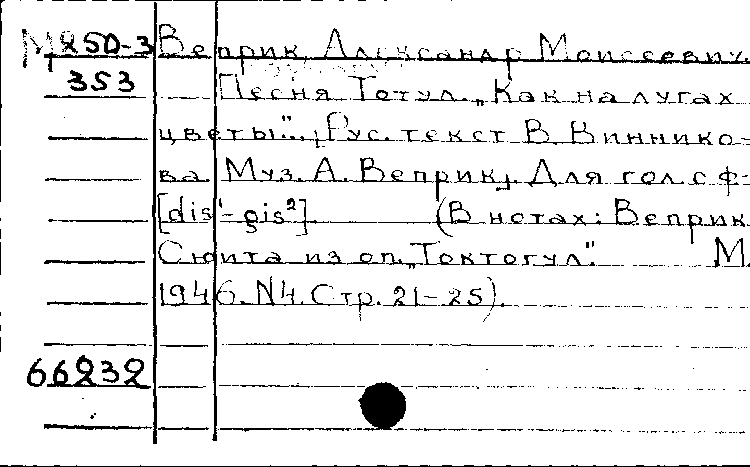 М250-3 Веприк, Александр Моисеевич.
353 Песня Тотул. „Как на лугах
цветы"... Рус. текст В. Виннико-
ва. Муз. А. Веприк. Для гол. с ф-
[dis¹-gis²] (В нотах: Веприк
Сюита из оп. „Токтогул". М.
1946. N4. Стр. 21-25).
66232